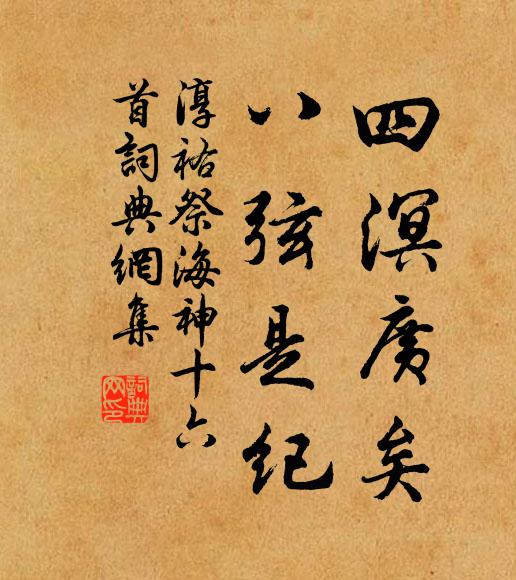 四溟廣矣
八弦是紀
淳祐祭海神十六
首詞典網集
詞典
网印